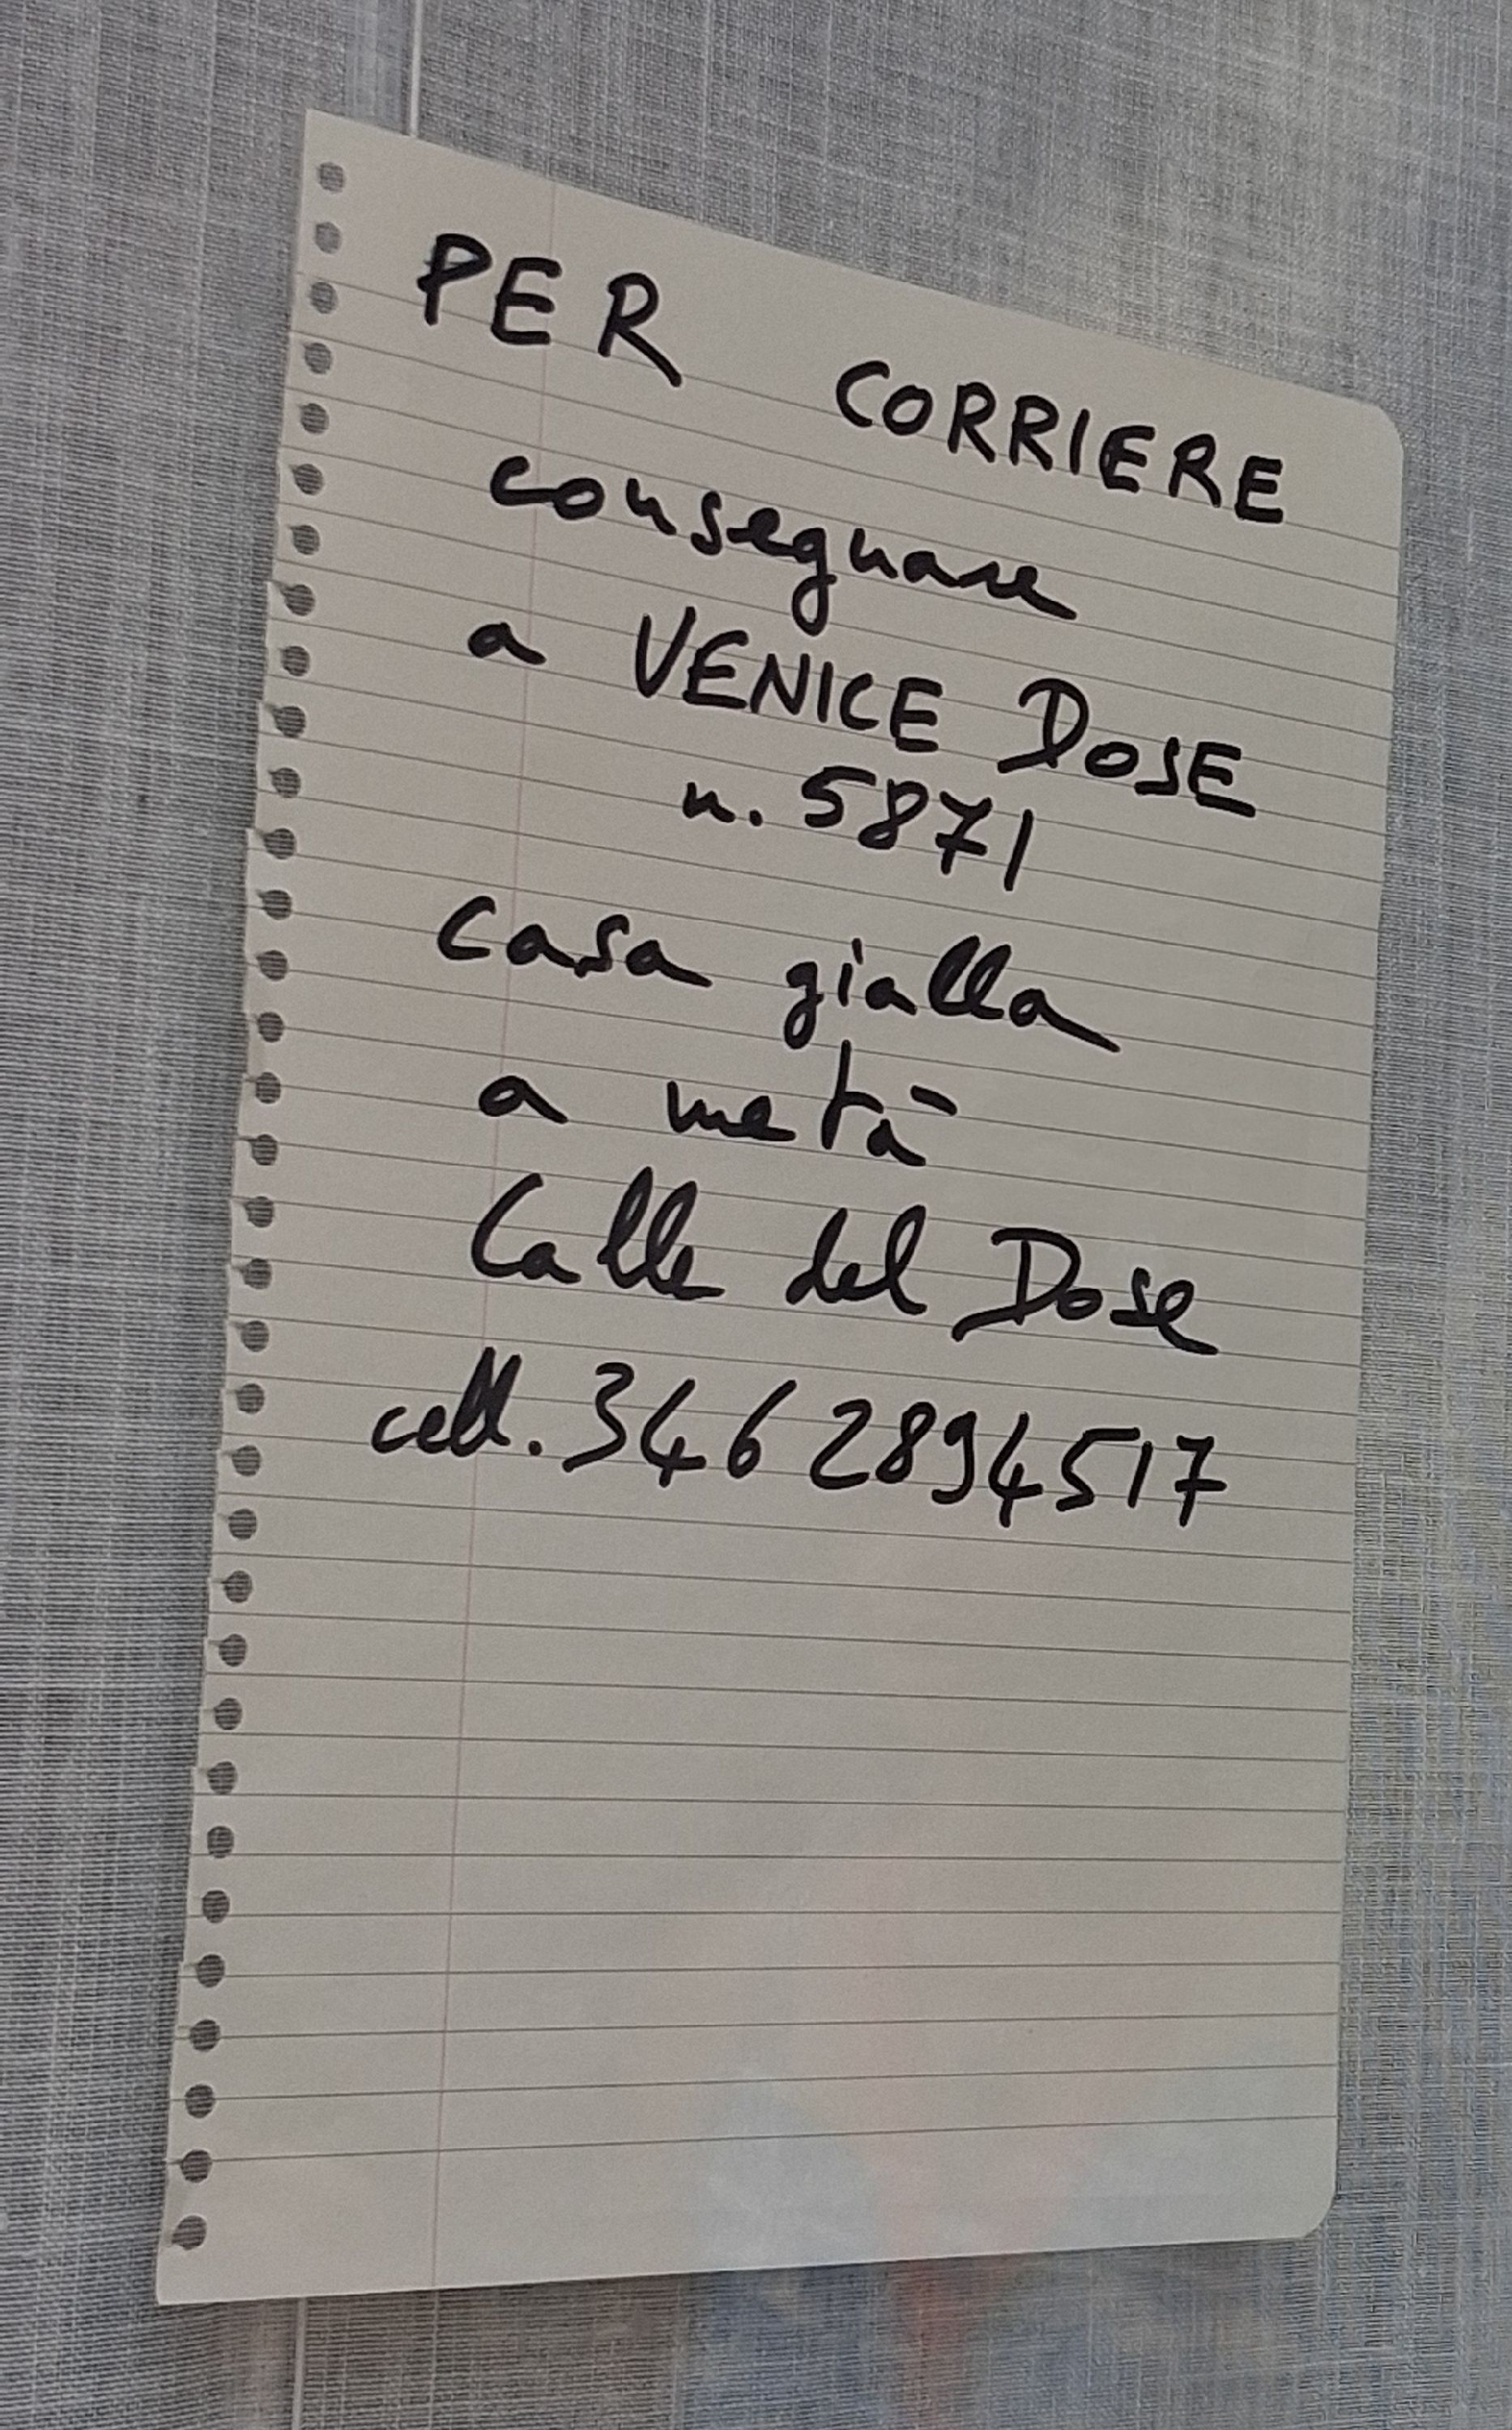 PER CORRIERE
consegnare
a VENICE DOSE
n. 5871
casa gialla
a metà
Calle del Dose
cell. 346 2894517